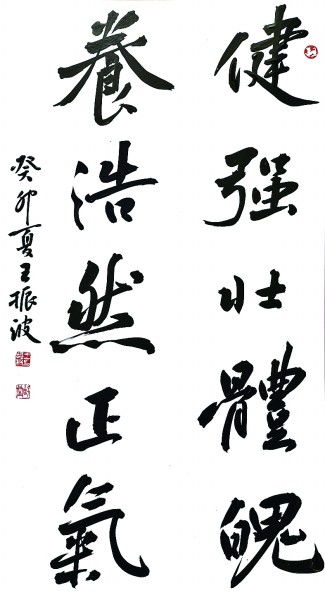 健强壮體魄
養浩然正氣
癸卯夏王振波